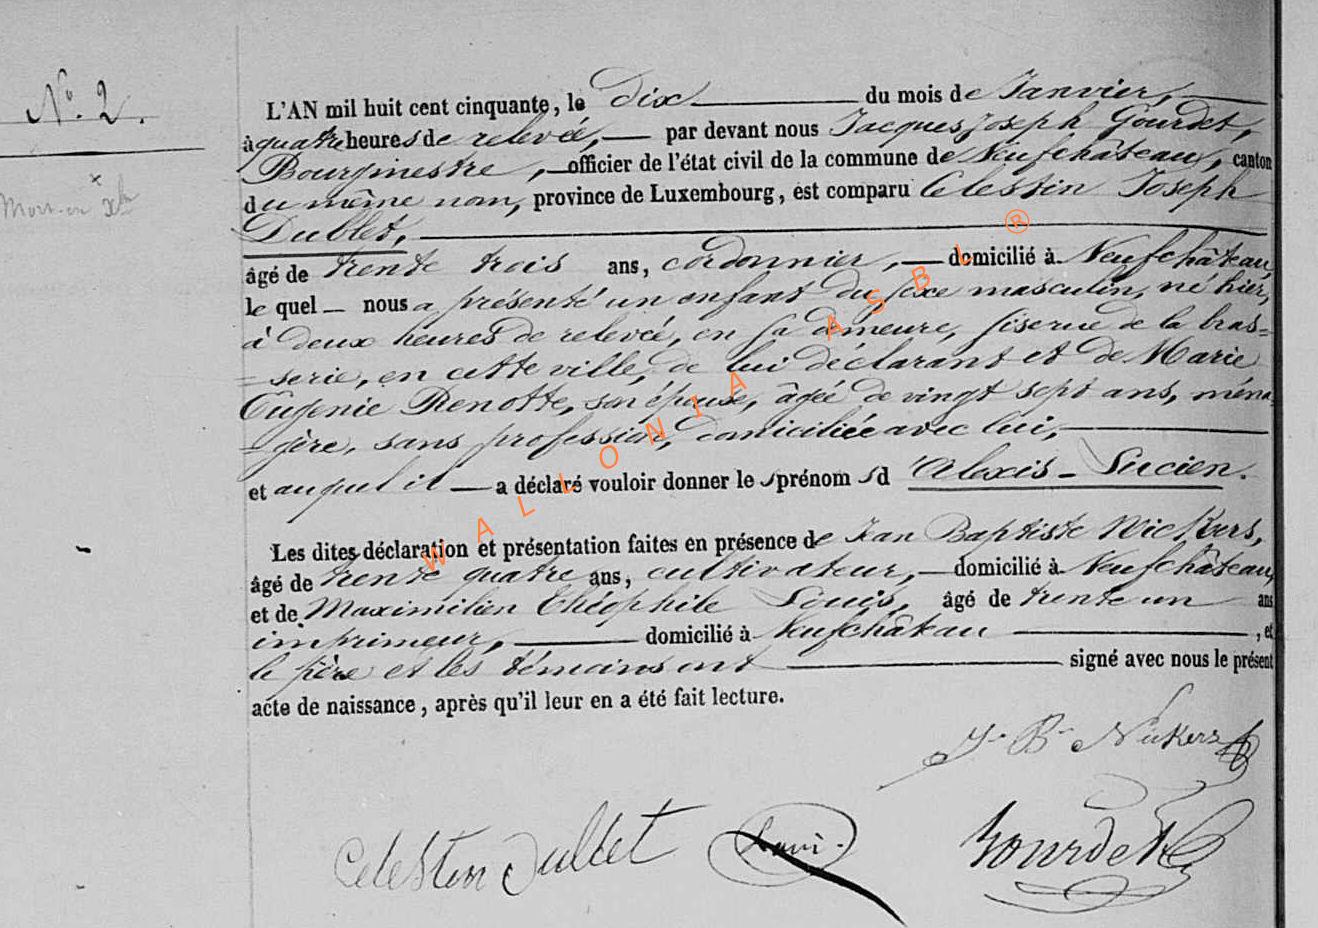 N° 2.
L'AN mil huit cent cinquante, le dix du mois de Janvier,
à quatre heures de relevée, par devant nous Jacques Joseph Gourdet,
Bourgmestre, officier de l'état civil de la commune de Neufchâteau, canton
du même nom, province de Luxembourg, est comparu Celestin Joseph
Dublet,
âgé de trente trois ans, cordonnier, domicilié à Neufchâteau,
le quel nous a présenté un enfant du sexe masculin, né hier,
à deux heures de relevée, en sa demeure, sise rue de la bras=
=serie, en cette ville, de lui déclarant et de Marie
Eugenie Renotte, son épouse, âgée de vingt sept ans, ména=
=gère, sans profession, domiciliée avec lui,
et auquel il a déclaré vouloir donner les prénoms d'Alexis-Lucien.
Les dites déclaration et présentation faites en présence de Jean Baptiste Nickers,
âgé de trente quatre ans, cultivateur, domicilié à Neufchâteau,
et de Maximilien Théophile Louis, âgé de trente un ans
imprimeur, domicilié à Neufchâteau, et
le père et les témoins ont signé avec nous le présent
acte de naissance, après qu'il leur en a été fait lecture.
J. B. Nickers
Celestin Dullet Gourdet
WALLONIA ASBL ®